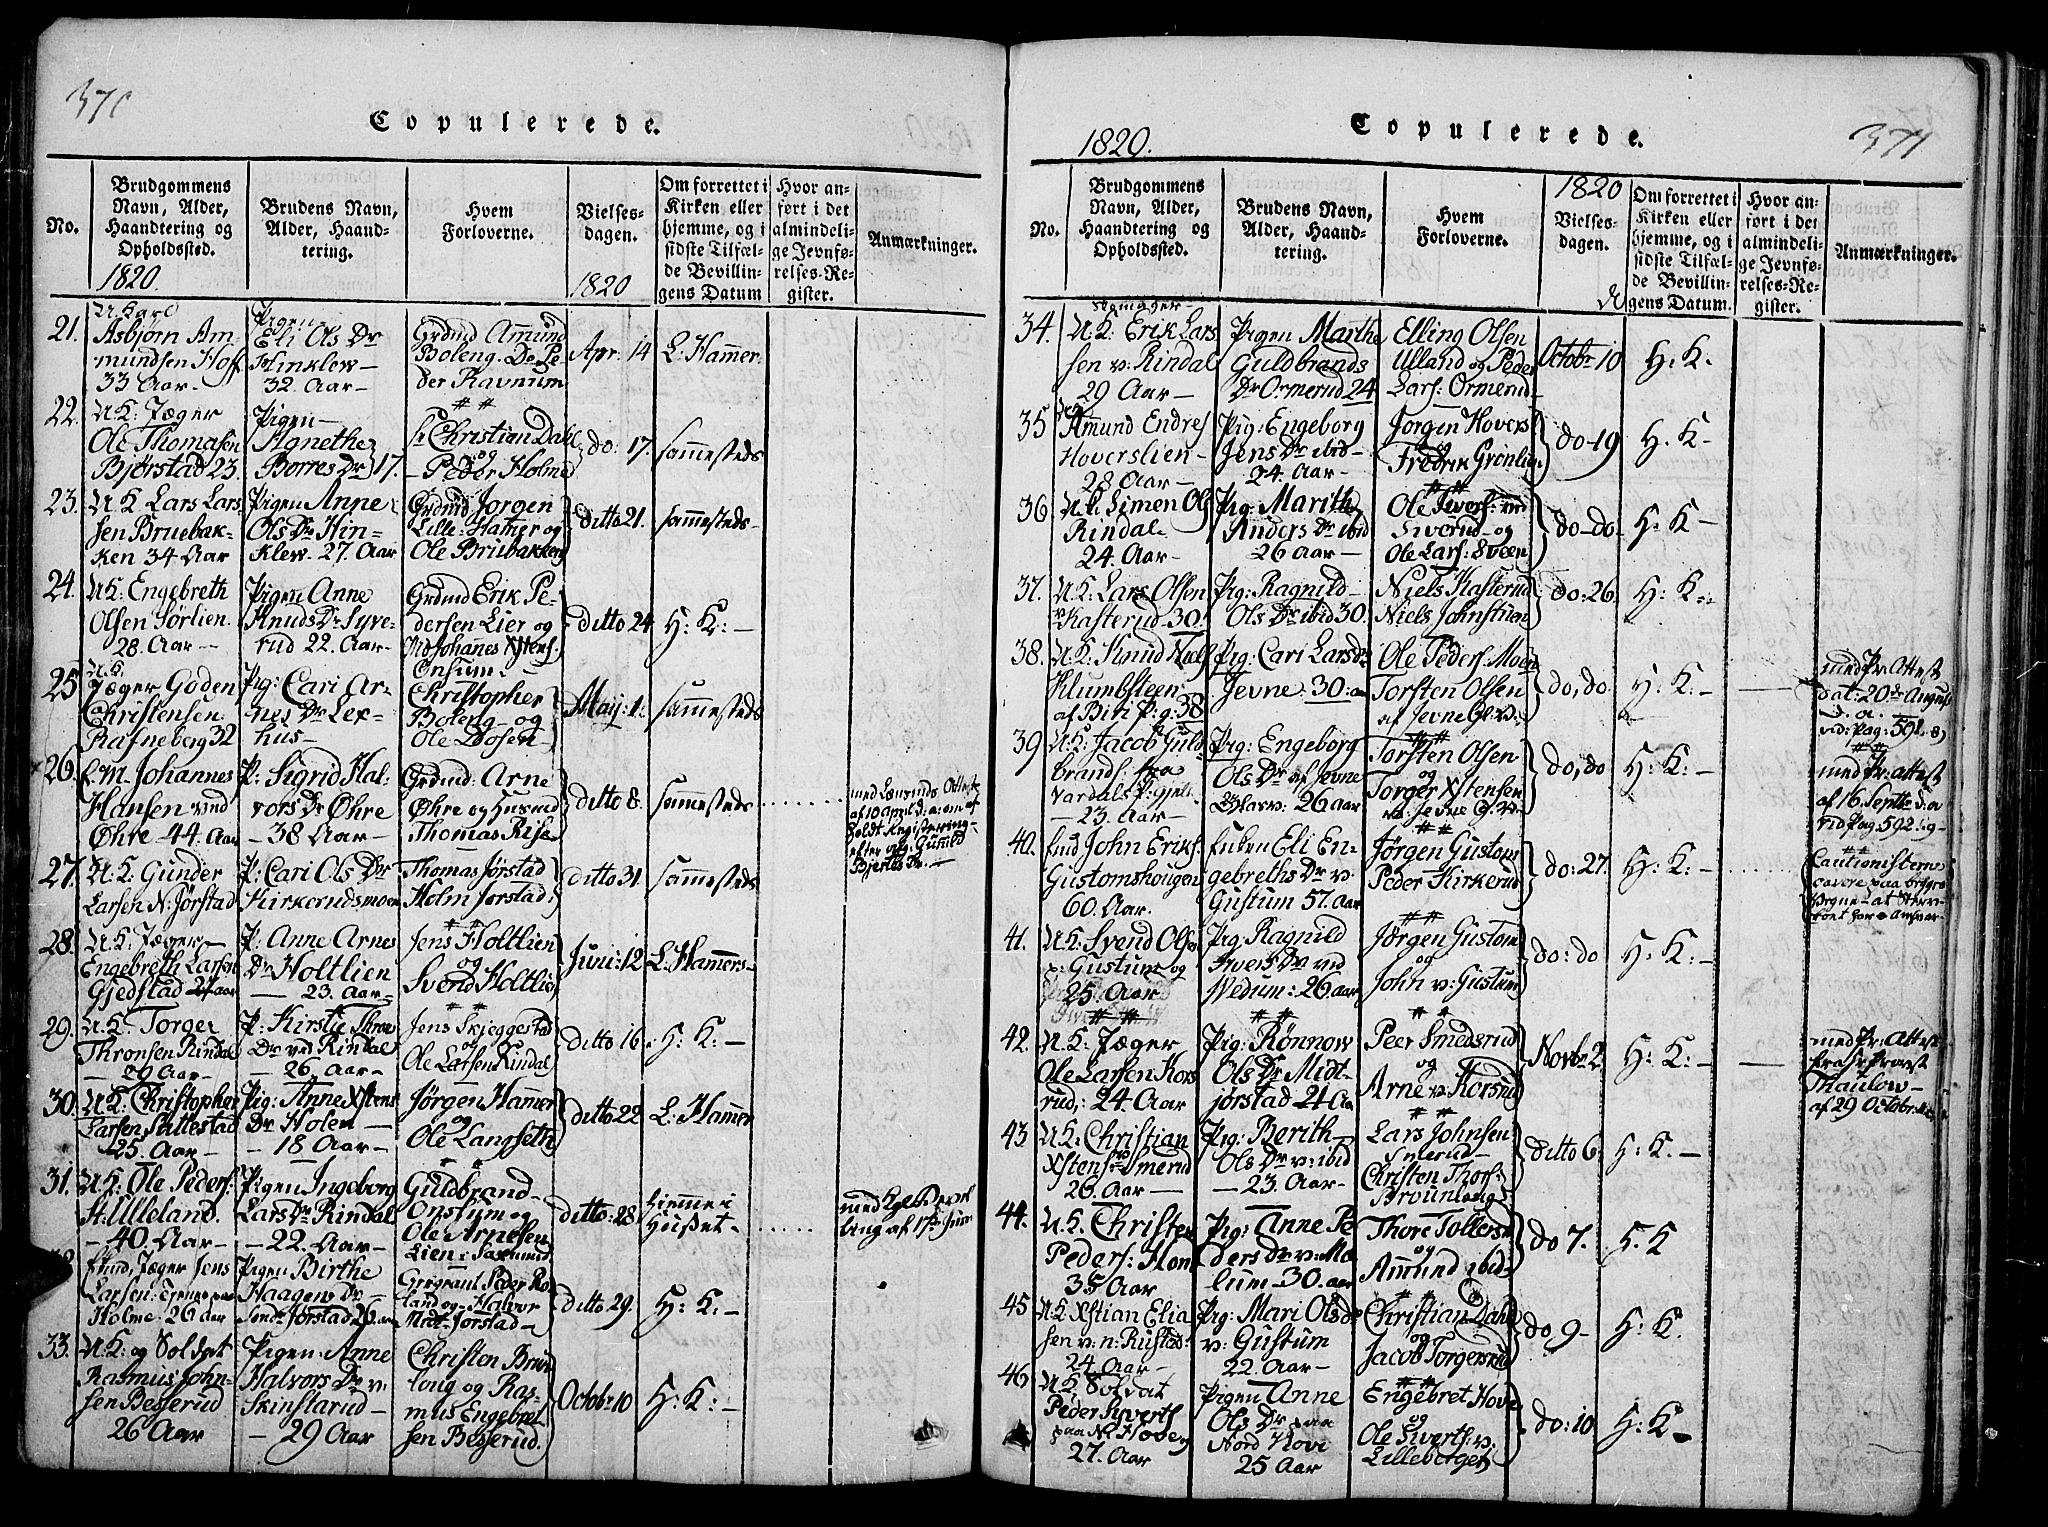 370
Copulerede.
No.
Brudgommens Navn, Alder, Haandtering og Opholdssted.
1820.
Brudens Navn, Alder, Haandtering.
Hvem Forloverne.
Vielses-dagen.
1820
Om forrettet i Kirken eller hjemme, og i sidste Tilfælde Bevillingens Datum
Hvor anført i det almindelige Jevnførelses-Register.
Anmærkninger.
21. U Karl Asbjørn Ammundsen Hoff 33 Aar
Pigen Eli Ols Dr Hinklew 32. Aar
Grdmd Amund Boleng. Do Peder Ravnum
Apr: 14
L: Hammer.
22. U K: Jæger Ole Thomasen Bjørstad 23.
Pigen Agnethe Borres Dr 17.
Sr Christian Dahl og Peder Holme
do: 17.
sammesteds
23. U K Lars Larssen Bruebakken 34 Aar
Pigen Anne Ols Dr Hinklew. 27. Aar
Grdmd Jørgen Lille-Hamer og Ole Bruebakken
Ditto 21.
sammesteds
24. U K: Engebreth Olsen Sørlien. 28. Aar
Pigen Anne Knuds Dr Syverud 22. Aar
Grdmd Erik Pedersen Lier og Johanes Xstens. Onsum.
Ditto 24
H: K: —
25 U K. Jæger Goden Christensen Rafneberg 32
Pig: Cari Arnes Dr Lexhus
Christopher Boleng og Ole Bosen
Maij: 1:
sammesteds
26. E. M. Johannes Hansen vnd Øhre 44. Aar
P: Sigrid Halvors Dr Øhre 38 Aar
Grdmd: Arne Øhre og Husmd Thomas Rise
Ditto 8.
sammesteds
27. U. K: Gunder Larsen N: Jørstad
P: Cari Ols Dr Kirkerudsmoen
Thomas Jørstad Holm Jørstad
Ditto 31.
sammesteds
28. U K: Jæger Engebreth Larsen Gjedstad 24 aar
P: Anne Arnes Dr Holtlien 23. Aar
Jens Holtlien og Svend Holtlien
Juni: 12
L: Hamers
29. U. K. Torger Thronsen Rindal 29 Aar
P: Kirstie Thro Dr vd Rindal 26. Aar
Jens Skjeggestad Ole Larsen Rindal
Ditto 16.
H: K: —
30. U K: Christopher Larsen Suttestad 25. Aar
Pig: Anne Xstens Dr Holen 18 Aar
Jørgen Hamer og Ole Langseth
Ditto 22
L: Hamer
31. U K: Ole Peders: H. Ulleland. 40. Aar
Pigen Ingeborg Lars Dr Rindal 22. Aar
Guldbrand Onstum og Ole Arnesen Lien
Ditto: 28
Hiemme i Huset
Enkmd, Jæger Jens Larsen Holme. 26 aar
Pigen Birthe Haagens Dr Jørstad 26.
Peder Roland og Halvor Mdt-Jørstad
Ditto 29.
H: K: —
33. U K: og Soldat Rasmus Johnsen Besserud 26 Aar
Pigen: Anne Halvors Dr v: Skinstarud 29 Aar
Christen Bruunlong og Rasmus Engebretsen Besserud.
Octobr 10
H: K: —
1820.
Copulerede.
371
No.
Brudgommens Navn, Alder, Haandtering og Opholdssted.
Brudens Navn, Alder, Haandtering.
Hvem Forloverne.
1820
Vielses-dagen.
Om forrettet i Kirken eller hjemme, og i sidste Tilfælde Bevillingens Datum.
Hvor anført i det almindelige Jevnførelses-Register.
Anmærkninger.
34. U K. Erik Larssen v: Rindal 29 Aar
Pigen Marthe Guldbrands Dr Ormerud 24
Elling Olsen Ulland og Peder Lars: Ormerud
Octobr 10
H: K.
35 Amund Endres Hoverslien 28 Aar
Pig: Engeborg Jens Dr ibid 24. Aar
Jørgen Hovers Fredrik Grønlien
do 19
H: K
36 U K: Simen Ols Rindal 24. Aar
Pig: Marith Anders Dr ibid 26 aar
Ole Swers: vnd Swerud og Ole Lars: Sveen
do-do.
H: K
37. U K: Lars Olsen v Hasterud 30.
Pig: Ragnild Ols Dr ibid 30.
Niels Hasterud Niels Johnstuen
do: 26.
H: K.
38. U K: Knud Niels Klumbsteen af Biri Pg: 38
Pig: Cari Lars Dr Jevne 30: a
Ole Peders: Moen Torsten Olsen af Jevne Gl: v:
do, do.
H: K: —
med Pr: Attest dat: 20de August d. a. vid: pag: 592. 8)
39 U. K: Jacob Guldbrands: fra Vardals P:gjeld 23. Aar
Pig: Engeborg Ols Dr af Jevne 26 Aar
Torsten Olsen og Torger Xstensen
do, do
H: K:
med Pr: attest af 16. Septbr d: a vid Pag: 592
40. Enkmd John Eriks: Gustomshougen 60. Aar.
Enken Eli Engebreths Dr v: Gustum 57. aar
Jørgen Gustom Peder Kirkerud
do: 27.
H: K: —
41. U K: Svend Olsen p: Gustum og 25 Aar
Pig: Ragnild Ivers Dr vid Wedum: 26. aar
Jørgen Gustom og John v: Gustum
do: do
H: K: —
42. U K: Jæger Ole Larsen Korsrud,: 24. Aar
Pig: Rønnow Ols Dr Midtjørstad 21 Aa
Peer Smedsrud og Arne v: Korsrud
Novbr 2
H: K: —
med Pr: Attest fra Hr Provst Thaulow af 29 Octobr:
43 U K: Christian Xstens: Smerud 26. Aar
Pig: Berith Ols Dr v: ibid 23. Aar
Lars Johnsen Smerud Christen Thors: Bruunlong
Ditto 6.
H: K. —
44. U. K. Christen Peders: Hom 35 Aar
Pig: Anne Peders Dr v: Molum 30. aar
Thore Tollers og Amund ibid
do 7.
H. K
45 U. K Xstian Eliasen v: n: Rustad 24 Aar
Pig: Mari Ols Dr v: Gustum 22. Aar
Christian Dahl og Jacob Torgersrud
do, 9
H: K.
46 U K. Soldat Peder Syverts paa N: Hove 27. Aar
Pigen Anne Ols Dr paa Nord Hove 25 Aar
Engebret Hove og Ole Swerts: v: Lilleberget
do: 10
H: K